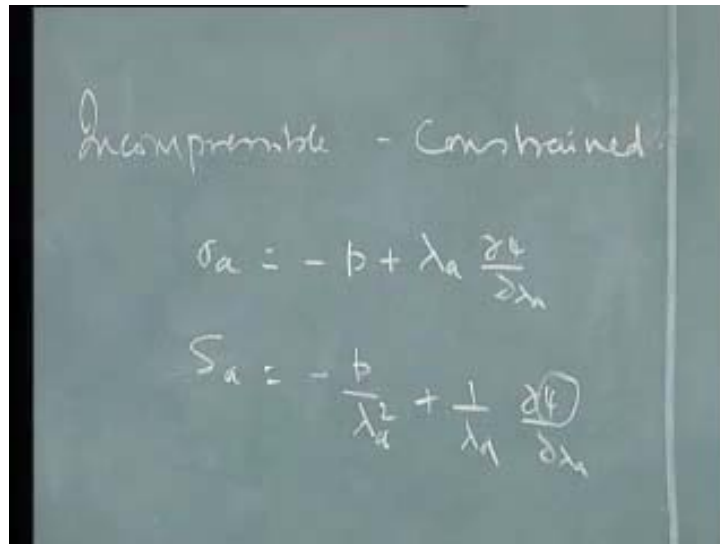 Incompressible - Constrained
σa = - p + λa ∂ψ/∂λa
Sa = - p/λa² + 1/λa ∂ψ/∂λa